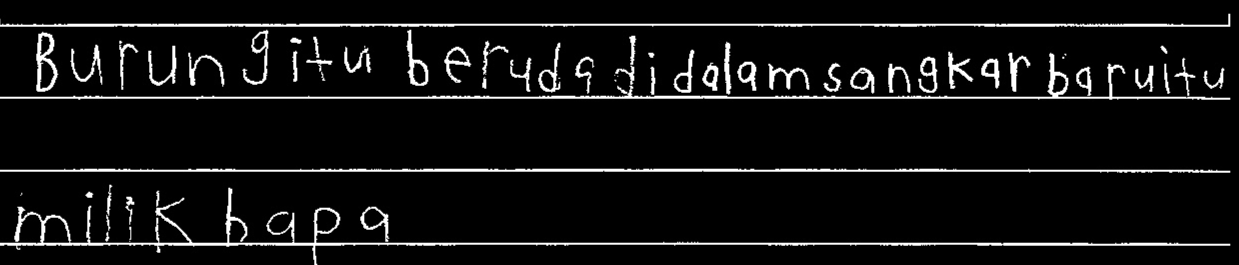 Burung itu berada di dalam sangkar baru itu
milik bapa